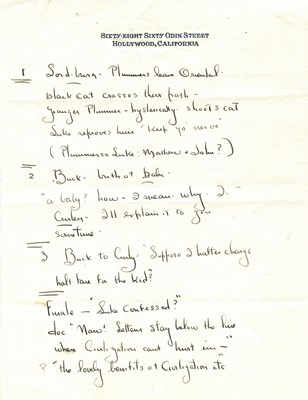 SIXTY-EIGHT SIXTY ODIN STREET
HOLLYWOOD, CALIFORNIA
1 Lordsburg - Plummers leave Oriental.
black cat crosses their path -
younger Plummer - hysterically shoots cat
Luke reproves him "keep yo' nerve"
(Plummers & Luke: Mathew & John?)
2 Buck - birth of babe -
"a baby? how - I mean why - I -
Curley - I'll explain it to you
sometime -
3 Buck to Curly - "Suppose I hafter charge
half fare for the kid?
Finale - "Luke Confessed?"
doc "Naw! Let em stay below the line
where Civilization can't hurt 'em -"
? "the lovely benifits of Civilization etc"